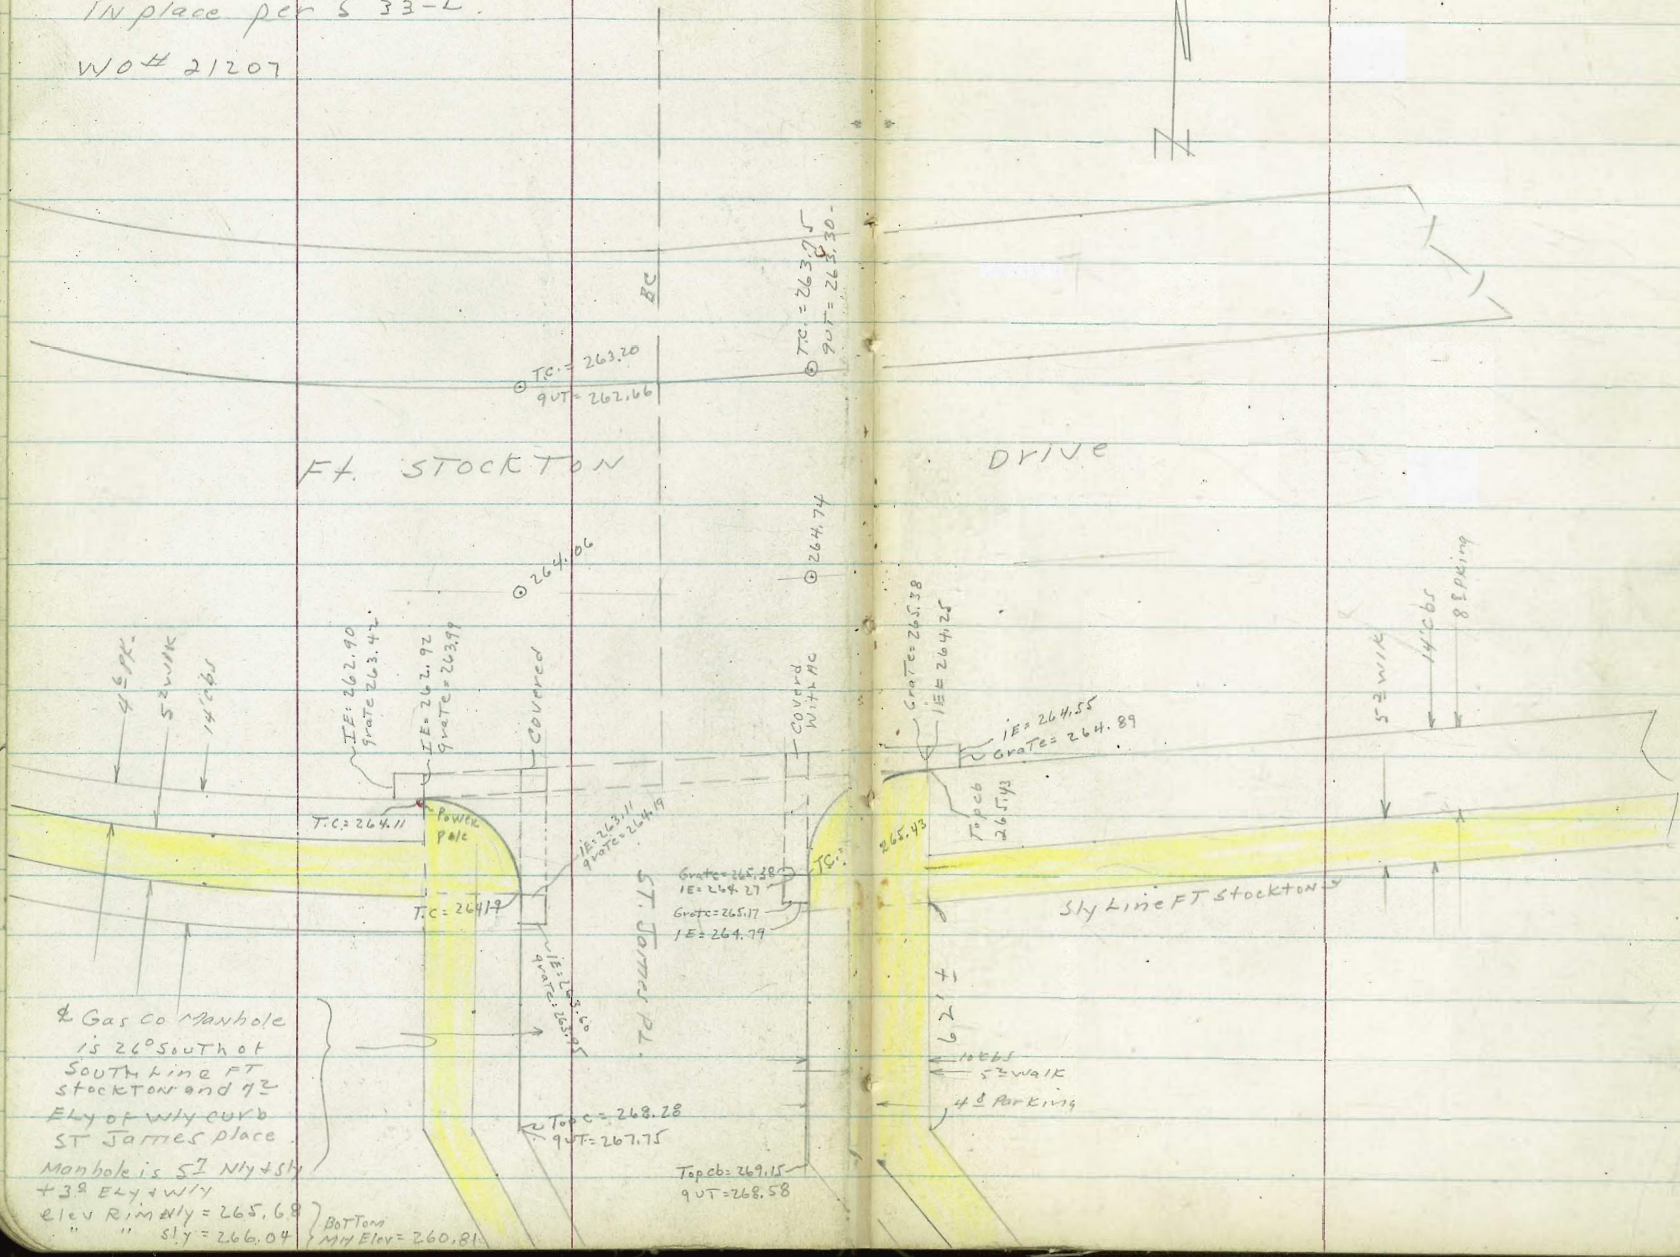 IN place per S 33-L.
WO# 21207
BC
T.C. = 263.75
gUT = 263.30
T.C. = 263.20
gUT = 262.66
Ft. STOCKTON
Drive
264.06
264.74
4 6 PK.
5 2 WlK
14" cbs
IE = 262.90
grate 263.42
IE = 262.92
grate = 263.99
Covered
Coverd
With AC
Grate = 265.38
IE = 264.25
IE = 264.55
Grate = 264.89
5 2 WlK
14" cbs
8 2 PKing
T.C = 264.11
Power
pole
IE = 263.11
grate = 264.19
Top cb
265.43
T.C. =
265.43
Grate = 265.38
IE = 264.27
T.C = 264.19
Grate = 265.17
IE = 264.79
Sly Line FT Stockton
ST. James PL.
62' ±
℄ Gas Co Manhole
is 26 0 South of
South Line FT
Stockton and 7 2
Ely of Wly curb
ST James place
Manhole is 5 7 Nly + Sly
+ 3 8 Ely + Wly
elev Rim Nly = 265.68
" " Sly = 266.04
Bottom
MH Elev = 260.81
Top c = 268.28
gUT = 267.75
Top cb = 269.15
gUT = 268.58
5 2 Walk
4 8 Parking